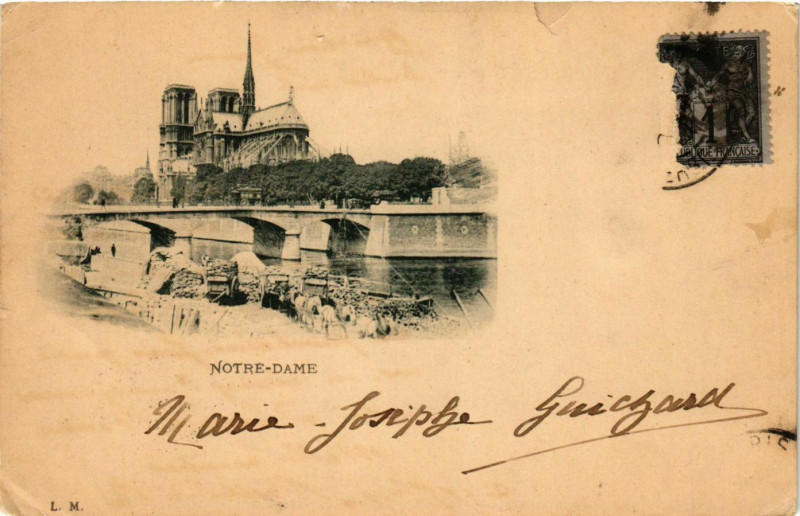 1
RÉPUBLIQUE FRANÇAISE
NOTRE-DAME
Marie-Josèphe Guichard
L. M.